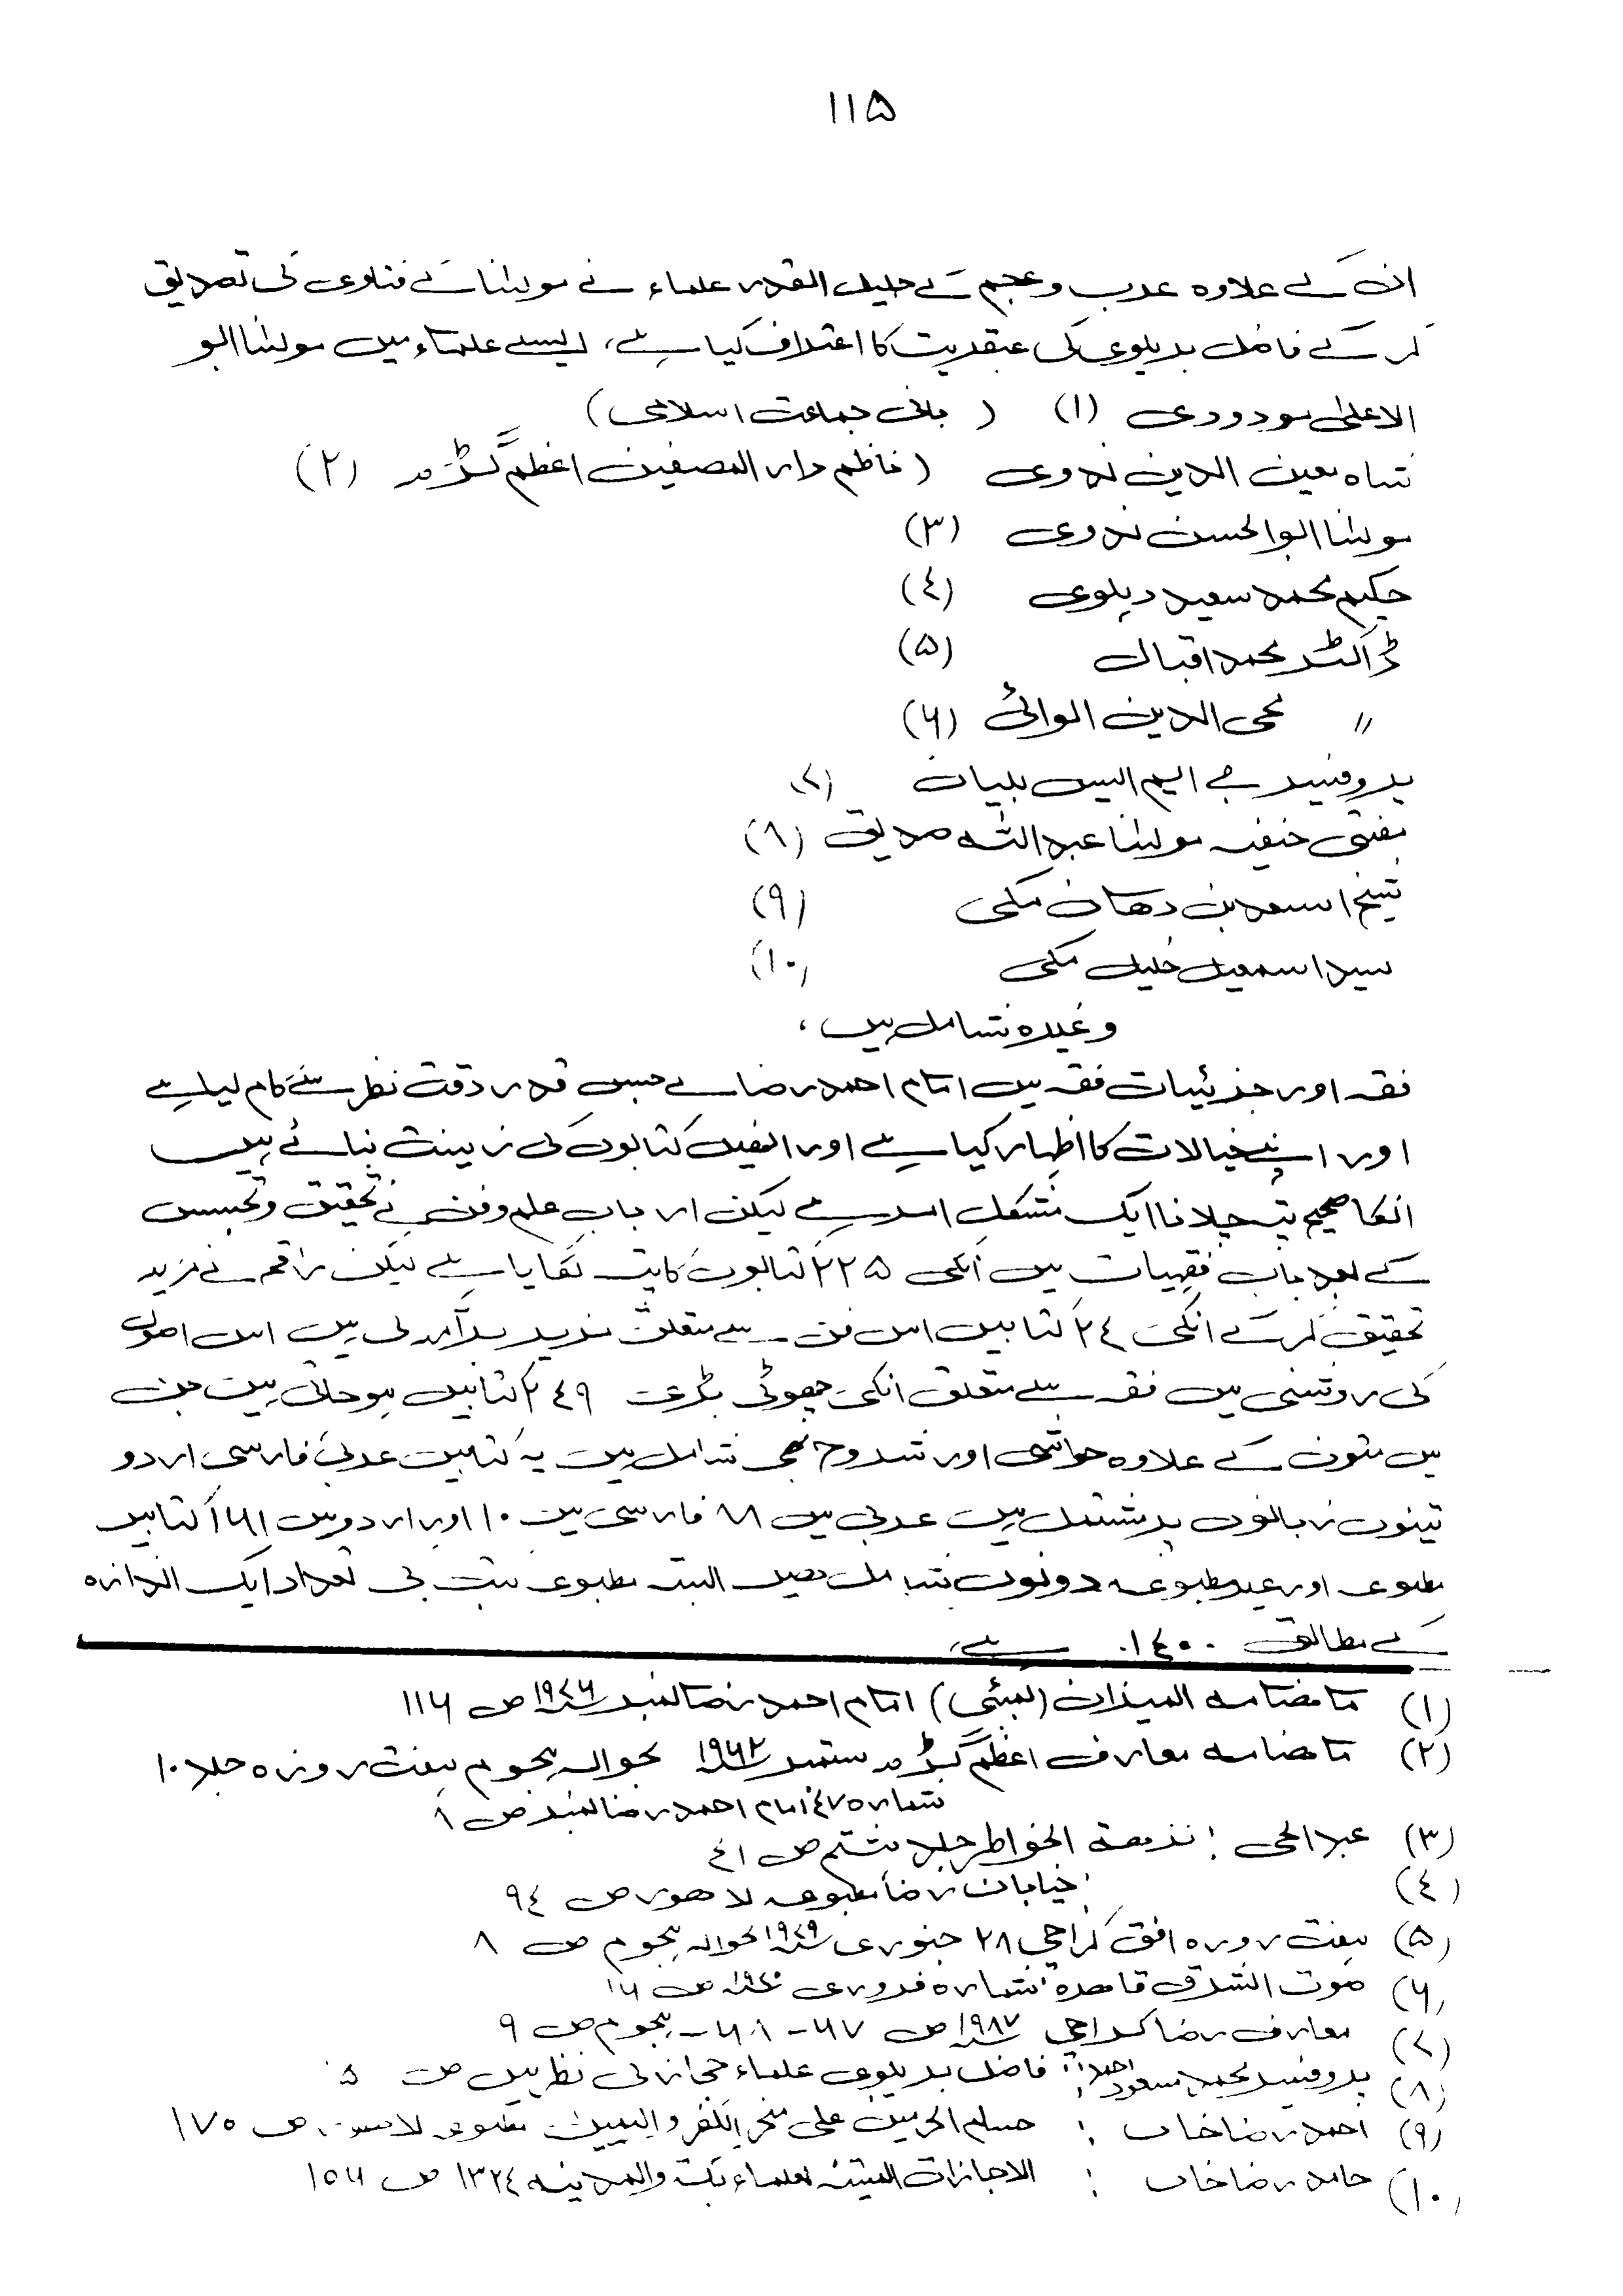 ۱۱۵
ان کے علاوہ عرب و عجم کے جلیل القدر علماء نے مولٰنا کے فتاوی کی تصدیق
کر کے فاضل بریلوی کی عبقریت کا اعتراف کیا ہے، ایسے علماء میں مولٰنا ابو
الاعلیٰ مودودی (۱) ( بانی جماعت اسلامی )
شاہ معین الدین ندوی ( ناظم دار المصنفین اعظم گڑھ (۲)
مولٰنا ابوالحسن ندوی (۳)
حکیم محمد سعید دہلوی (٤)
ڈاکٹر محمد اقبال (۵)
〃 محی الدین الوائی (۶)
پروفیسر جے ایم ایس بلیان (۷)
مفتی حنفیہ مولٰنا عبد اللہ صدیق (۸)
شیخ اسعد بن دھان مکی (۹)
سید اسمعیل خلیل مکی (۱۰)
وغیرہ شامل ہیں،
فقہ اور جزئیات فقہ میں امام احمد رضا نے جس قدر دقت نظر سے کام لیا ہے
اور اپنے خیالات کا اظہار کیا ہے اور انھیں کتابوں کی زینت بنائے ہیں
انکا صحیح پتہ چلانا ایک مشکل امر ہے لیکن ارباب علم و فن نے تحقیق و تجسس
کے بعد جاب فقہیات میں انکی ۲۲۵ کتابوں کا پتہ لگایا ہے لیکن راقم نے مزید
تحقیق کر کے انکی ۲٤ کتابیں اس فن سے متعلق مزید برآمد کی ہیں اس اصول
کی روشنی میں فقہ سے متعلق انکی چھوٹی بڑی ۲٤۹ کتابیں ہو جاتی ہیں جن
میں متون کے علاوہ حواشی اور شروح بھی شامل ہیں یہ کتابیں عربی فارسی اردو
تینوں زبانوں پر مشتمل ہیں عربی میں ۷۸ فارسی میں ۱۰ اور اردو میں ۱۶۱ کتابیں
مطبوعہ اور غیر مطبوعہ دونوں شامل ھیں البتہ مطبوعہ کتب کی تعداد ایک اندازہ
کے مطابق ۱٤۰۰ ہے،
(۱) ماھنامہ المیزان (بمبئی) امام احمد رضا نمبر ۱۹۷۶ ص ۱۱۶
(۲) ماھنامہ معارف اعظم گڑھ ستمبر ۱۹۶۲ بحوالہ ہجوم ہفت روزہ جلد ۱۰
شمارہ ٤۷،۵ امام احمد رضا نمبر ص ۸
(۳) عبد الحی : نزھۃ الخواطر جلد ہشتم ص ٤۱
(٤) خیابان رضا مطبوعہ لاھور ص ۹٤
(۵) ہفت روزہ افق کراچی ۲۸ جنوری ۱۹۷۹ بحوالہ ہجوم ص ۸
(۶) صوت الشرق قاھرہ شمارہ فروری ۱۹۷۰ ص ۱۶
(۷) معارف رضا کراچی ۱۹۸۷ ص ۶۷ - ۶۸ - ہجوم ص ۹
(۸) پروفیسر محمد مسعود احمد : فاضل بریلوی علماء حجاز کی نظر میں ص
(۹) احمد رضا خاں : حسام الحرمین علی منحر الکفر والمین مطبوعہ لاھور ص ۱۷۵
(۱۰) حامد رضا خاں : الاجازات المتینہ لعلماء بکۃ والمدینہ ۱۳۲٤ ص ۱۵۶